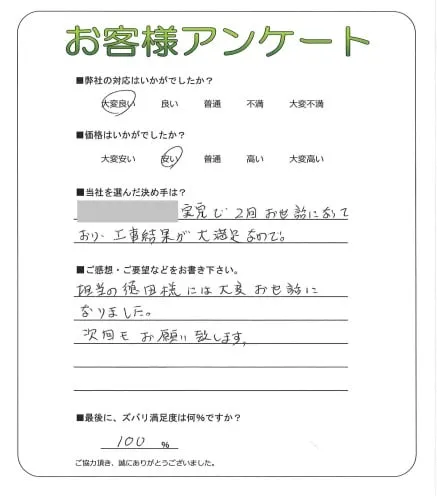 お客様アンケート
■弊社の対応はいかがでしたか？
大変良い 良い 普通 不満 大変不満
■価格はいかがでしたか？
大変安い 安い 普通 高い 大変高い
■当社を選んだ決め手は？
実家で2回お世話になって
おり、工事結果が大満足なので。
■ご感想・ご要望などをお書き下さい。
担当の徳田様には大変お世話に
なりました。
次回もお願い致します。
■最後に、ズバリ満足度は何％ですか？
100 ％
ご協力頂き、誠にありがとうございました。